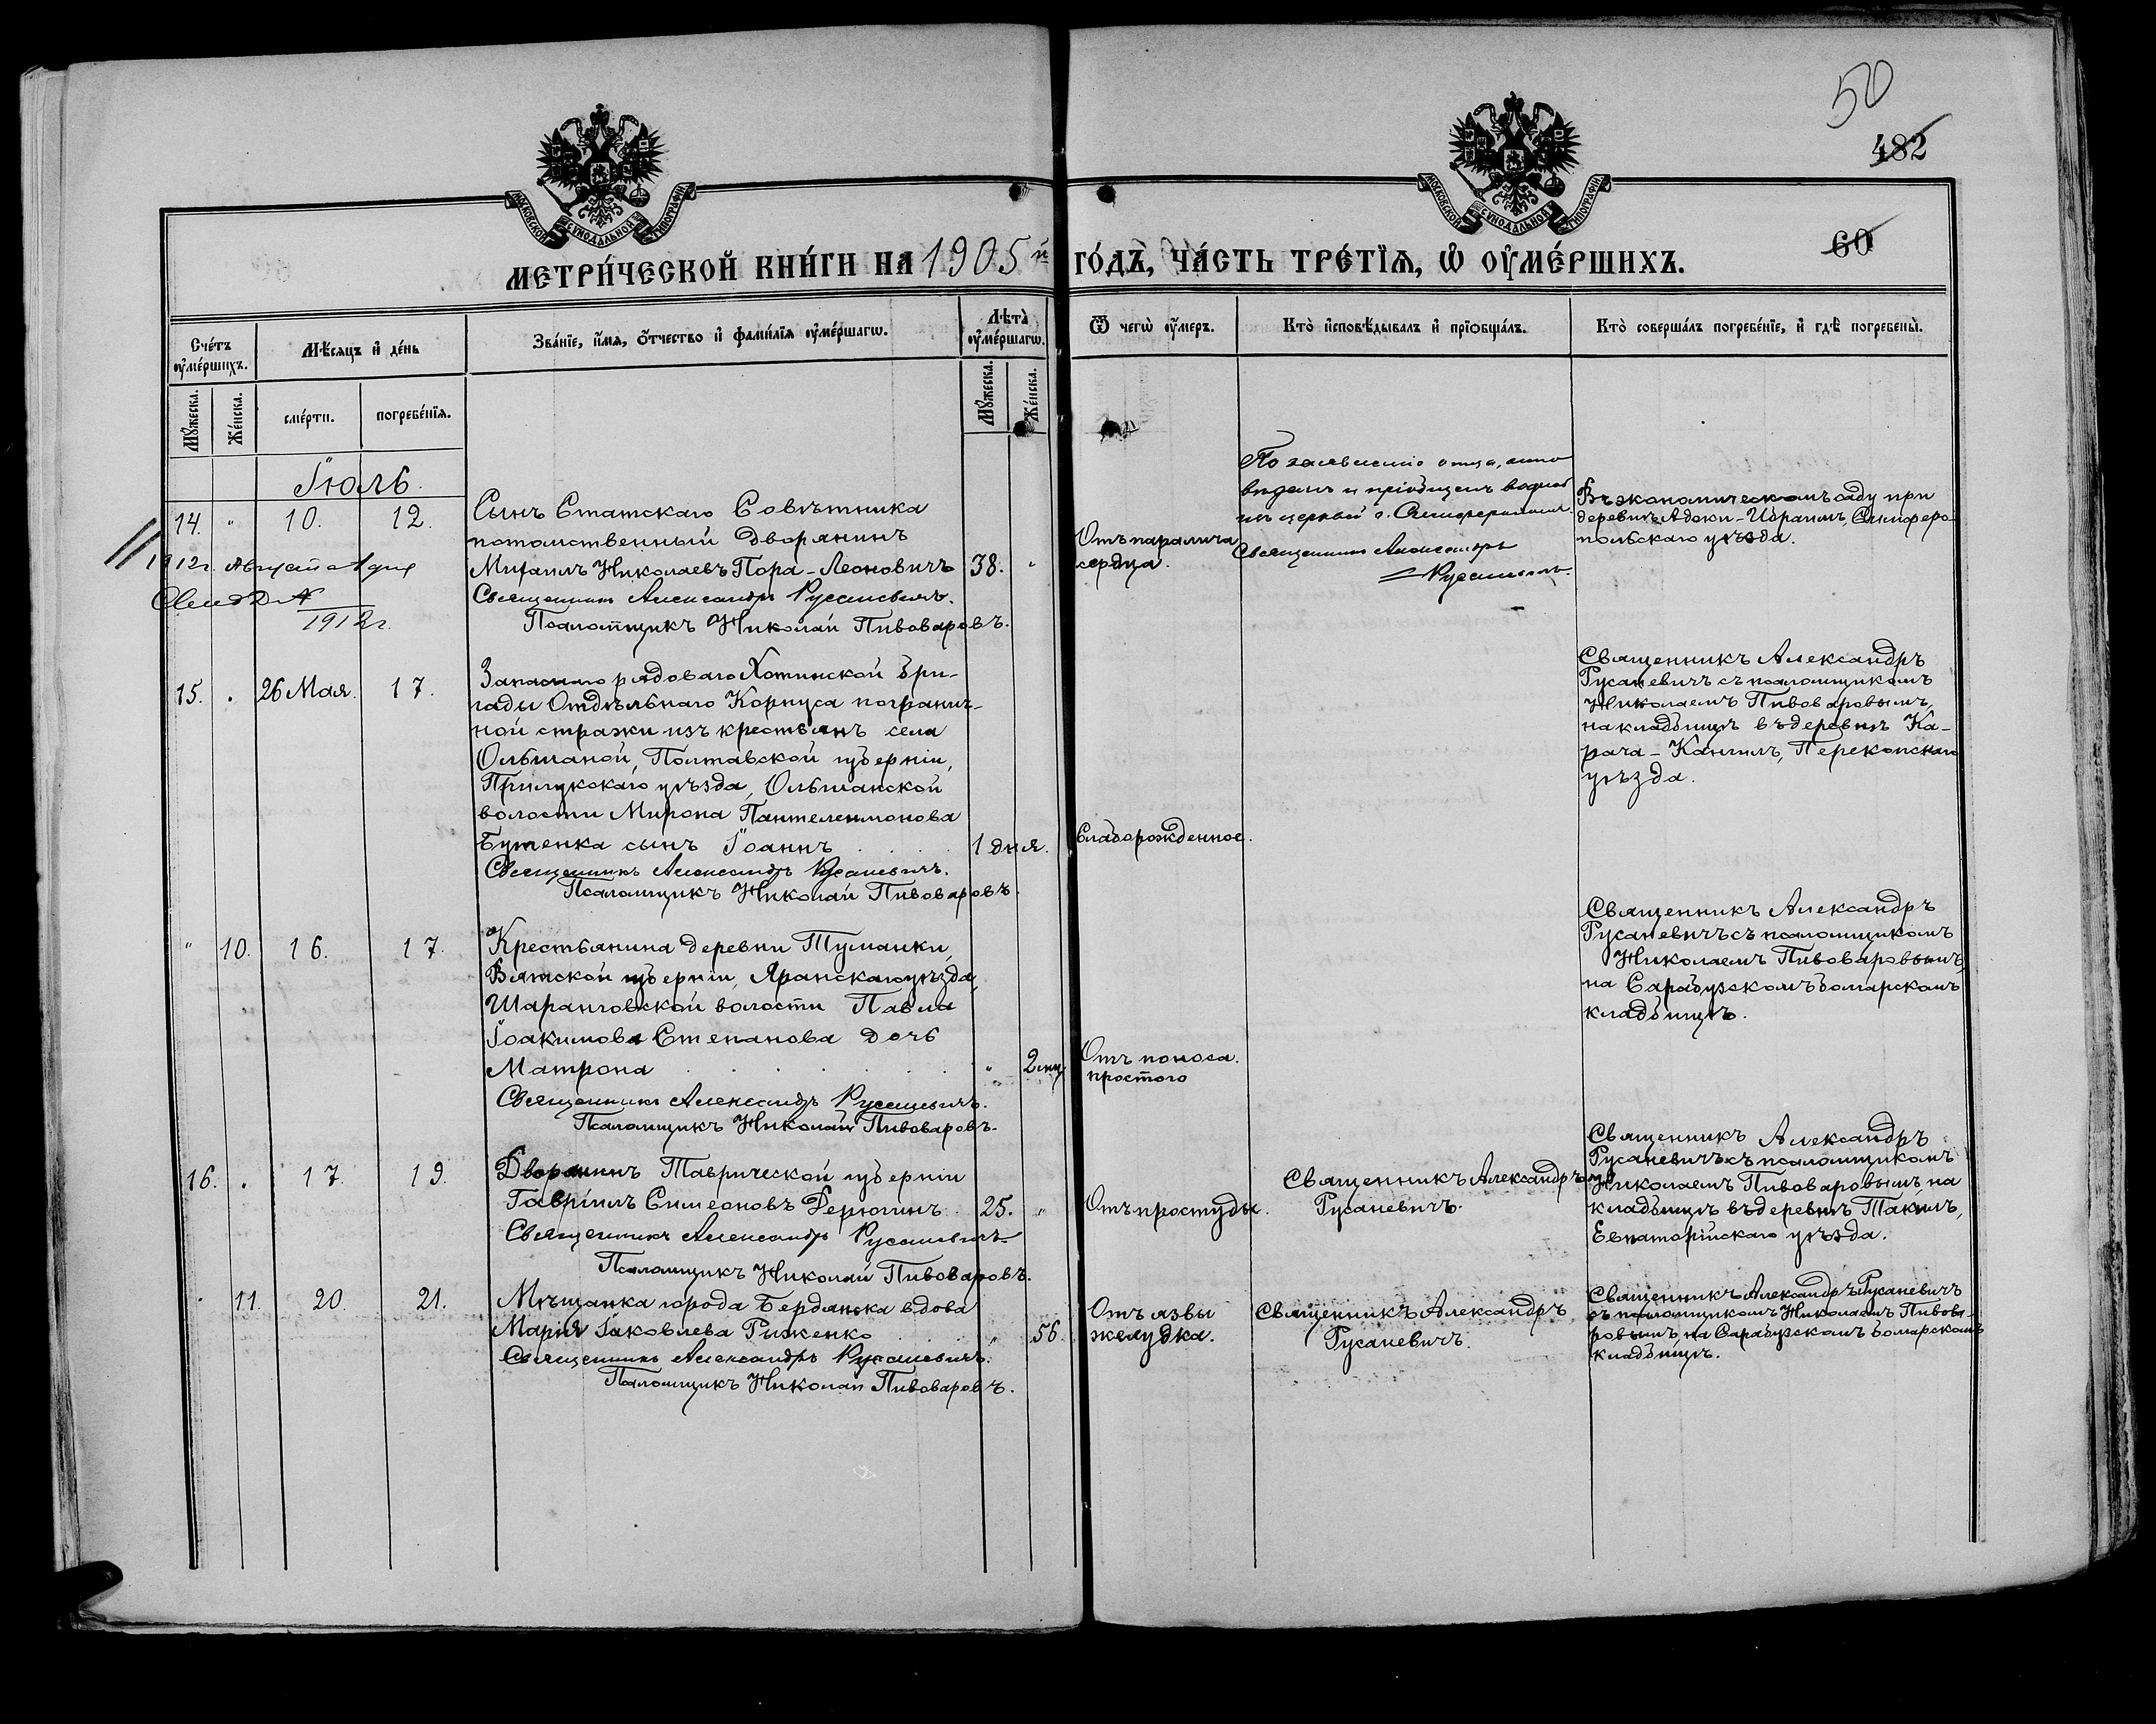 50
482
60
МОСКОВСКОЙ СѴНОДАЛЬНОЙ ТИПОГРАФІИ
МОСКОВСКОЙ СѴНОДАЛЬНОЙ ТИПОГРАФІИ
МЕТРИ́ЧЕСКОЙ КНИ́ГИ НА 1905й ГО́ДЪ, ЧА́СТЬ ТРЕ́ТІѦ, Ѡ ОУМЕ́РШИХЪ.
Сче́тъ оумершихъ.
Мѣсяцъ и де́нь
Зва́ніе, и́мя, о́тчество и фами́лія оуме́ршагѡ.
Лѣта̀ оуме́ршагѡ.
Ѿ чегѡ̀ оу́меръ.
Кто̀ исповѣ́дывалъ и пріѡбща́лъ.
Кто̀ соверша́лъ погребе́ніе, и гдѣ̀ погребены̀.
Му́жеска.
Же́нска.
сме́рти.
погребе́нія.
Му́жеска.
Же́нска.
Іюль.
14. " 10. 12.
Сынъ Статскаго Совѣтника
потомственный дворянинъ
Михаилъ Николаевъ Пора-Леоновичъ 38. "
Священникъ Александръ Русаневичъ.
Псаломщикъ Николай Пивоваровъ.
1912г. Августа 1 дня
1912г.
Отъ паралича
сердца.
По заявленію отца, испо
Священникъ Александръ
Русаневичъ.
Въ экономическомъ саду при
деревнѣ Аджи-Ибраимъ, Симферо-
польскаго уѣзда.
15. . 26 Мая. 17.
Запаснаго рядоваго Хотинской бри-
гады Отдѣльнаго Корпуса погранич-
ной стражи изъ крестьянъ села
Ольшаной, Полтавской губерніи,
Прилукскаго уѣзда, Ольшанской
волости Мирона Пантелеимонова
Бутенка сынъ Іоаннъ 1 дня.
Священникъ Александръ Русаневичъ.
Псаломщикъ Николай Пивоваровъ.
Слаборожденное.
Священникъ Александръ
Русаневичъ съ псаломщикомъ
Николаемъ Пивоваровымъ,
на кладбищѣ въ деревнѣ Ка-
рача-Кангилъ, Перекопскаго
уѣзда.
" 10. 16. 17.
Крестьянина деревни Туманки,
Вятской губерніи, Яранскаго уѣзда,
Шаранговской волости Павла
Іоакимова Степанова дочь
Матрона " 2 мц
Священникъ Александръ Русаневичъ.
Псаломщикъ Николай Пивоваровъ.
Отъ поноса.
простого
Священникъ Александръ
Русаневичъ съ псаломщикомъ
Николаемъ Пивоваровымъ,
на Сарабузскомъ болгарскомъ
кладбищѣ.
16. . 17. 19.
Дворянинъ Таврической губерніи
Гавріилъ Симеоновъ Дерюгинъ 25. "
Священникъ Александръ Русаневичъ
Псаломщикъ Николай Пивоваровъ.
Отъ простуды.
Священникъ Александръ
Русаневичъ.
Священникъ Александръ
Русаневичъ съ псаломщикомъ
Николаемъ Пивоваровымъ на
кладбищѣ въ деревнѣ Такилъ,
Евпаторійскаго уѣзда.
" 11. 20. 21.
Мѣщанка города Бердянска вдова
Марія Іаковлева Риженко " 56.
Священникъ Александръ Русаневичъ.
Псаломщикъ Николай Пивоваровъ.
Отъ язвы
желудка.
Священникъ Александръ
Русаневичъ.
Священникъ Александръ Русаневичъ
съ псаломщикомъ Николаемъ Пивова-
ровымъ, на Сарабузскомъ болгарскомъ
кладбищѣ.